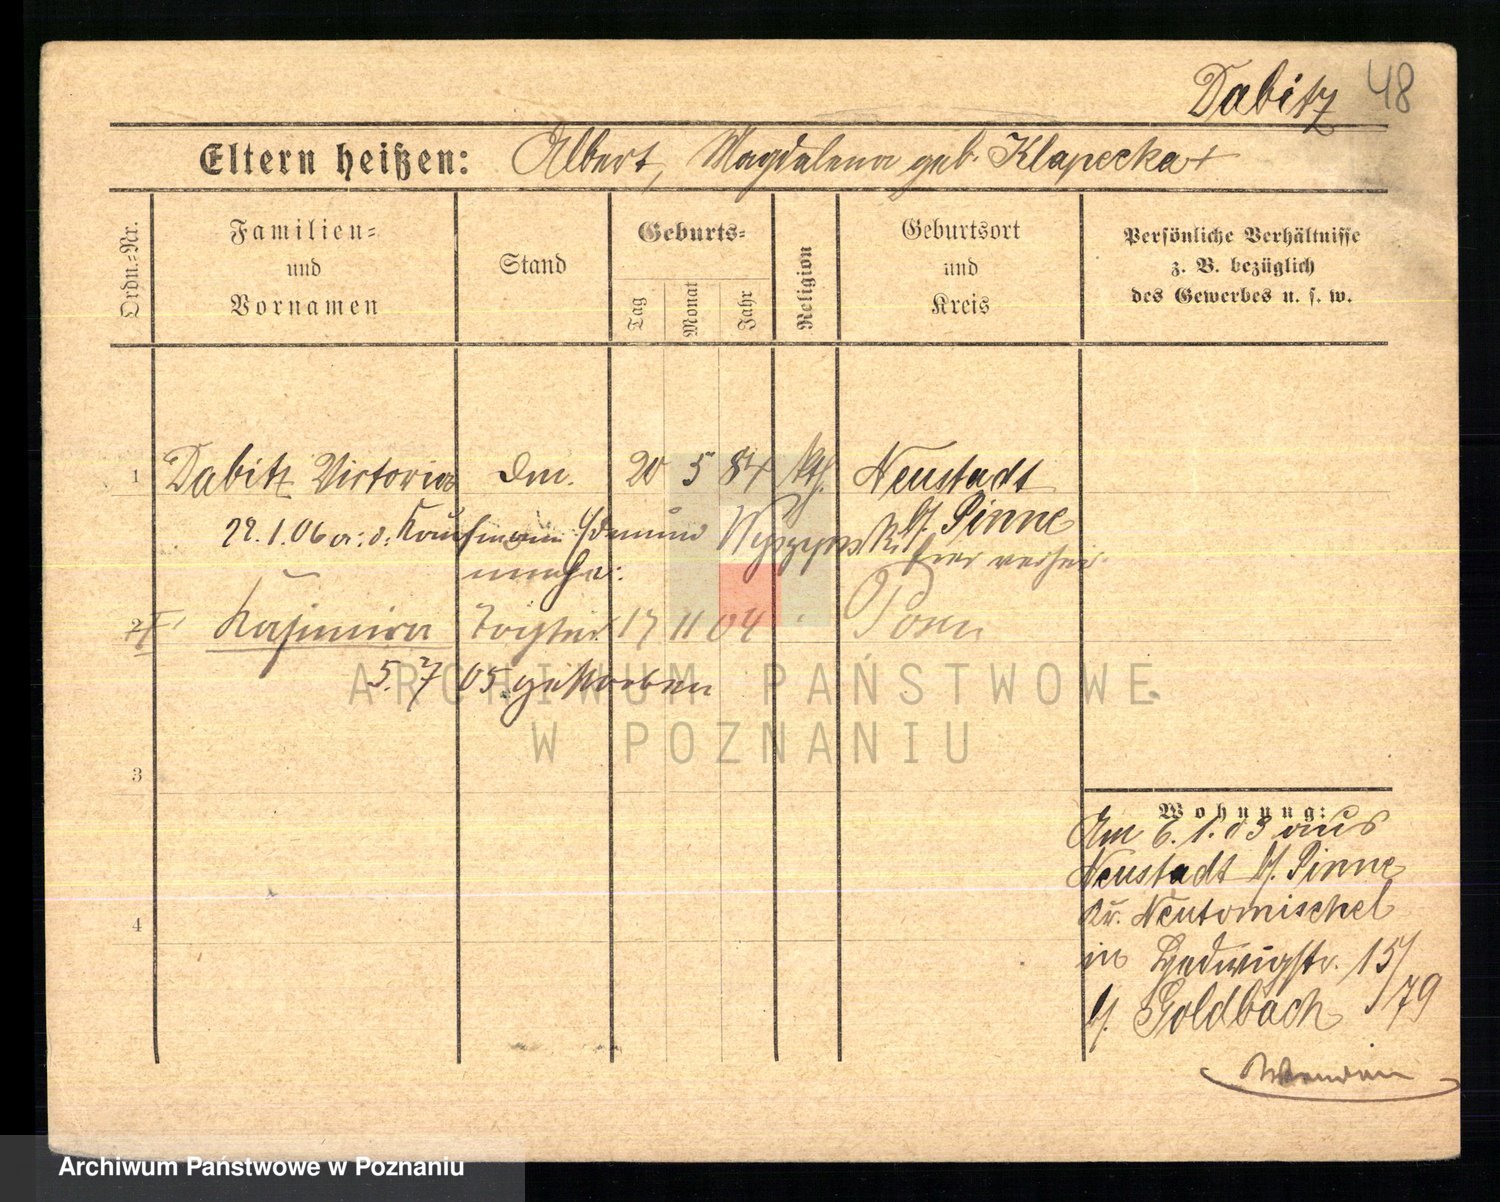 Dabitz 48
Eltern heißen: Albert, Magdalena geb. Klapecka +
Ordn.-Nr.
Familien- und Vornamen
Stand
Geburts-
Tag
Monat
Jahr
Religion
Geburtsort und Kreis
Persönliche Verhältnisse
z. B. bezüglich
des Gewerbes u. s. w.
1 Dabitz Victoria 20 5 84 kth. Neustadt
b/. Pinne
22.1.06 a: d. Kaufmann Edmund Wyszynski
hier verheir.
2 Kasimira Tochter 17 11 04 " Posen
5. 7 05. gestorben
3
4
Wohnung:
Am 6. 1. 03 aus
Neustadt b/. Pinne
Kr. Neutomischel
in Hedwigstr. 15/
b/. Goldbach /79
ARCHIWUM PAŃSTWOWE
W POZNANIU
Archiwum Państwowe w Poznaniu